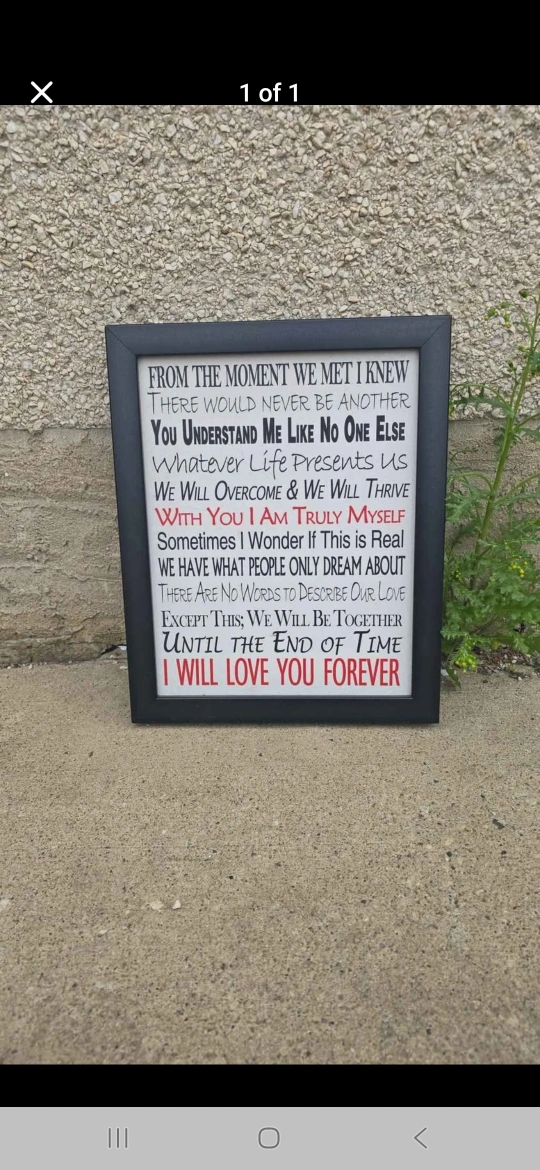 1 of 1
FROM THE MOMENT WE MET I KNEW
THERE WOULD NEVER BE ANOTHER
YOU UNDERSTAND ME LIKE NO ONE ELSE
Whatever Life Presents Us
WE WILL OVERCOME & WE WILL THRIVE
WITH YOU I AM TRULY MYSELF
Sometimes I Wonder If This is Real
WE HAVE WHAT PEOPLE ONLY DREAM ABOUT
THERE ARE NO WORDS TO DESCRIBE OUR LOVE
EXCEPT THIS; WE WILL BE TOGETHER
UNTIL THE END OF TIME
I WILL LOVE YOU FOREVER